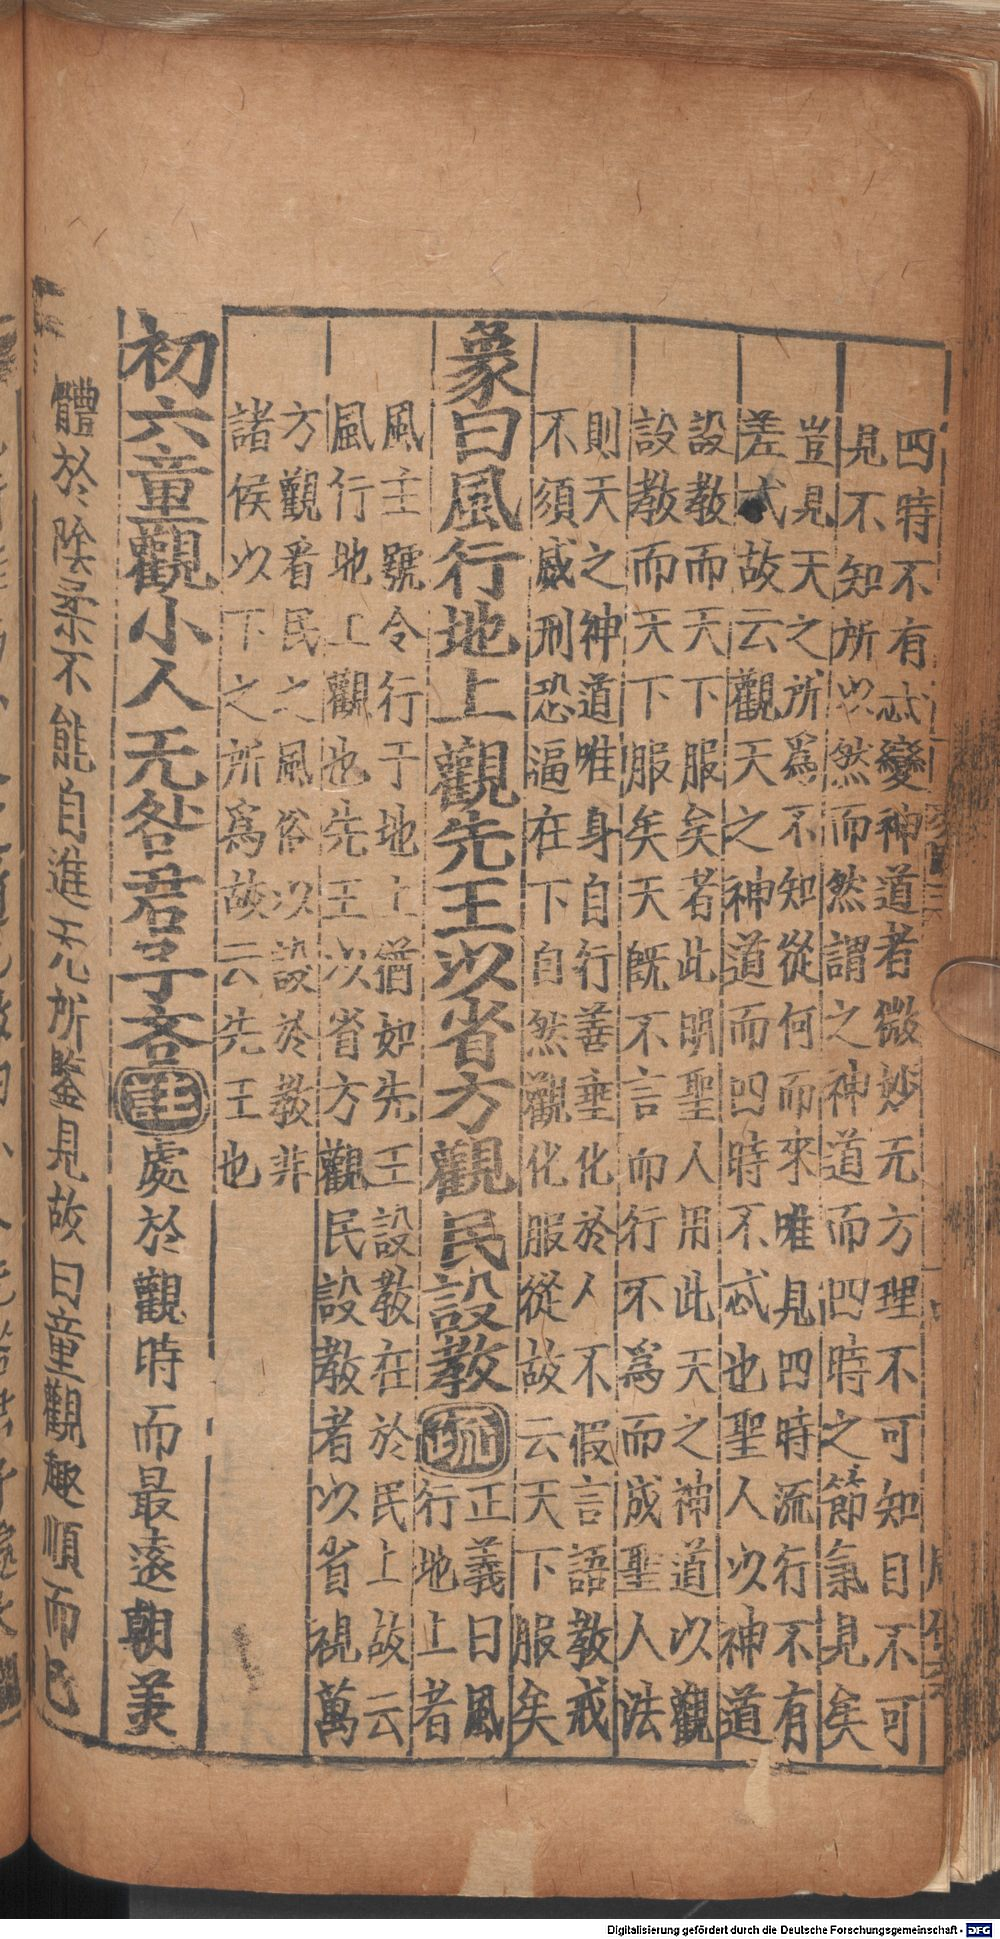 四時不有忒變神道者微妙无方理不可知目不可
見不知所以然而然謂之神道而四時之節氣見矣
豈見天之所爲不知從何而來唯見四時流行不有
差忒故云觀天之神道而四時不忒也聖人以神道
設教而天下服矣者此明聖人用此天之神道以觀
設教而天下服矣天旣不言而行不爲而成聖人法
則天之神道唯身自行善垂化於人不假言語教戒
不須威刑恐逼在下自然觀化服從故云天下服矣
象曰風行地上觀先王以省方觀民設教 疏 正義曰風
行地上者
風主號令行于地上猶如先王設教在於民上故云
風行地上觀也先王以省方觀民設教者以省視萬
方觀看民之風俗以設於教非
諸侯以下之所爲故云先王也
初六童觀小人无咎君子吝 註 處於觀時而最遠朝美
體於陰柔不能自進无所鑒見故曰童觀趣順而已
Digitalisierung gefördert durch die Deutsche Forschungsgemeinschaft - DFG